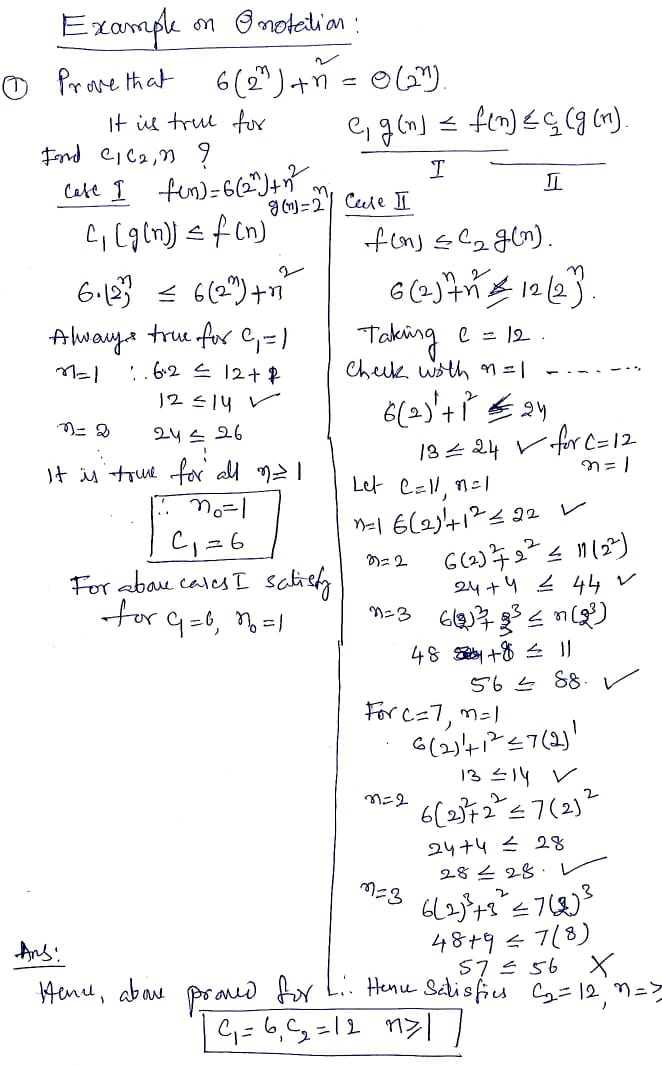 Example on Θ notation:
① Prove that 6(2ⁿ)+n² = Θ(2ⁿ).
It is true for C₁ g(n) ≤ f(n) ≤ C₂ (g(n)).
Find C₁ C₂, n ?
I II
Case I f(n)=6(2ⁿ)+n²
g(n)=2ⁿ
C₁ (g(n)) ≤ f(n)
6·(2)ⁿ ≤ 6(2ⁿ)+n²
Always true for C₁=1
n=1 ∴ 6·2 ≤ 12+2
12 ≤ 14 ✓
n=2 24 ≤ 26
It is true for all n≥1
∴ n₀=1
C₁=6
For above cases I satisfy
for C₁=6, n₀=1
Case II
f(n) ≤ C₂ g(n).
6(2)ⁿ+n² ≤ 12(2)ⁿ.
Taking c = 12.
Check with n=1 -------
6(2)¹+1² ≤ 24
13 ≤ 24 ✓ for C=12
n=1
Let C=11, n=1
n=1 6(2)¹+1² ≤ 22 ✓
n=2 6(2)²+2² ≤ 11(2²)
24+4 ≤ 44 ✓
n=3 6(2)³+3³ ≤ n(2³)
48 +8 ≤ 11
56 ≤ 88. ✓
For c=7, n=1
6(2)¹+1² ≤ 7(2)¹
13 ≤ 14 ✓
n=2 6(2)²+2² ≤ 7(2)²
24+4 ≤ 28
28 ≤ 28. ✓
n=3 6(2)³+3² ≤ 7(2)³
48+9 ≤ 7(8)
57 ≤ 56 X
Ans:
Hence, above proved for L.. Hence Satisfies C₂=12, n=>
C₁=6, C₂=12 n≥1